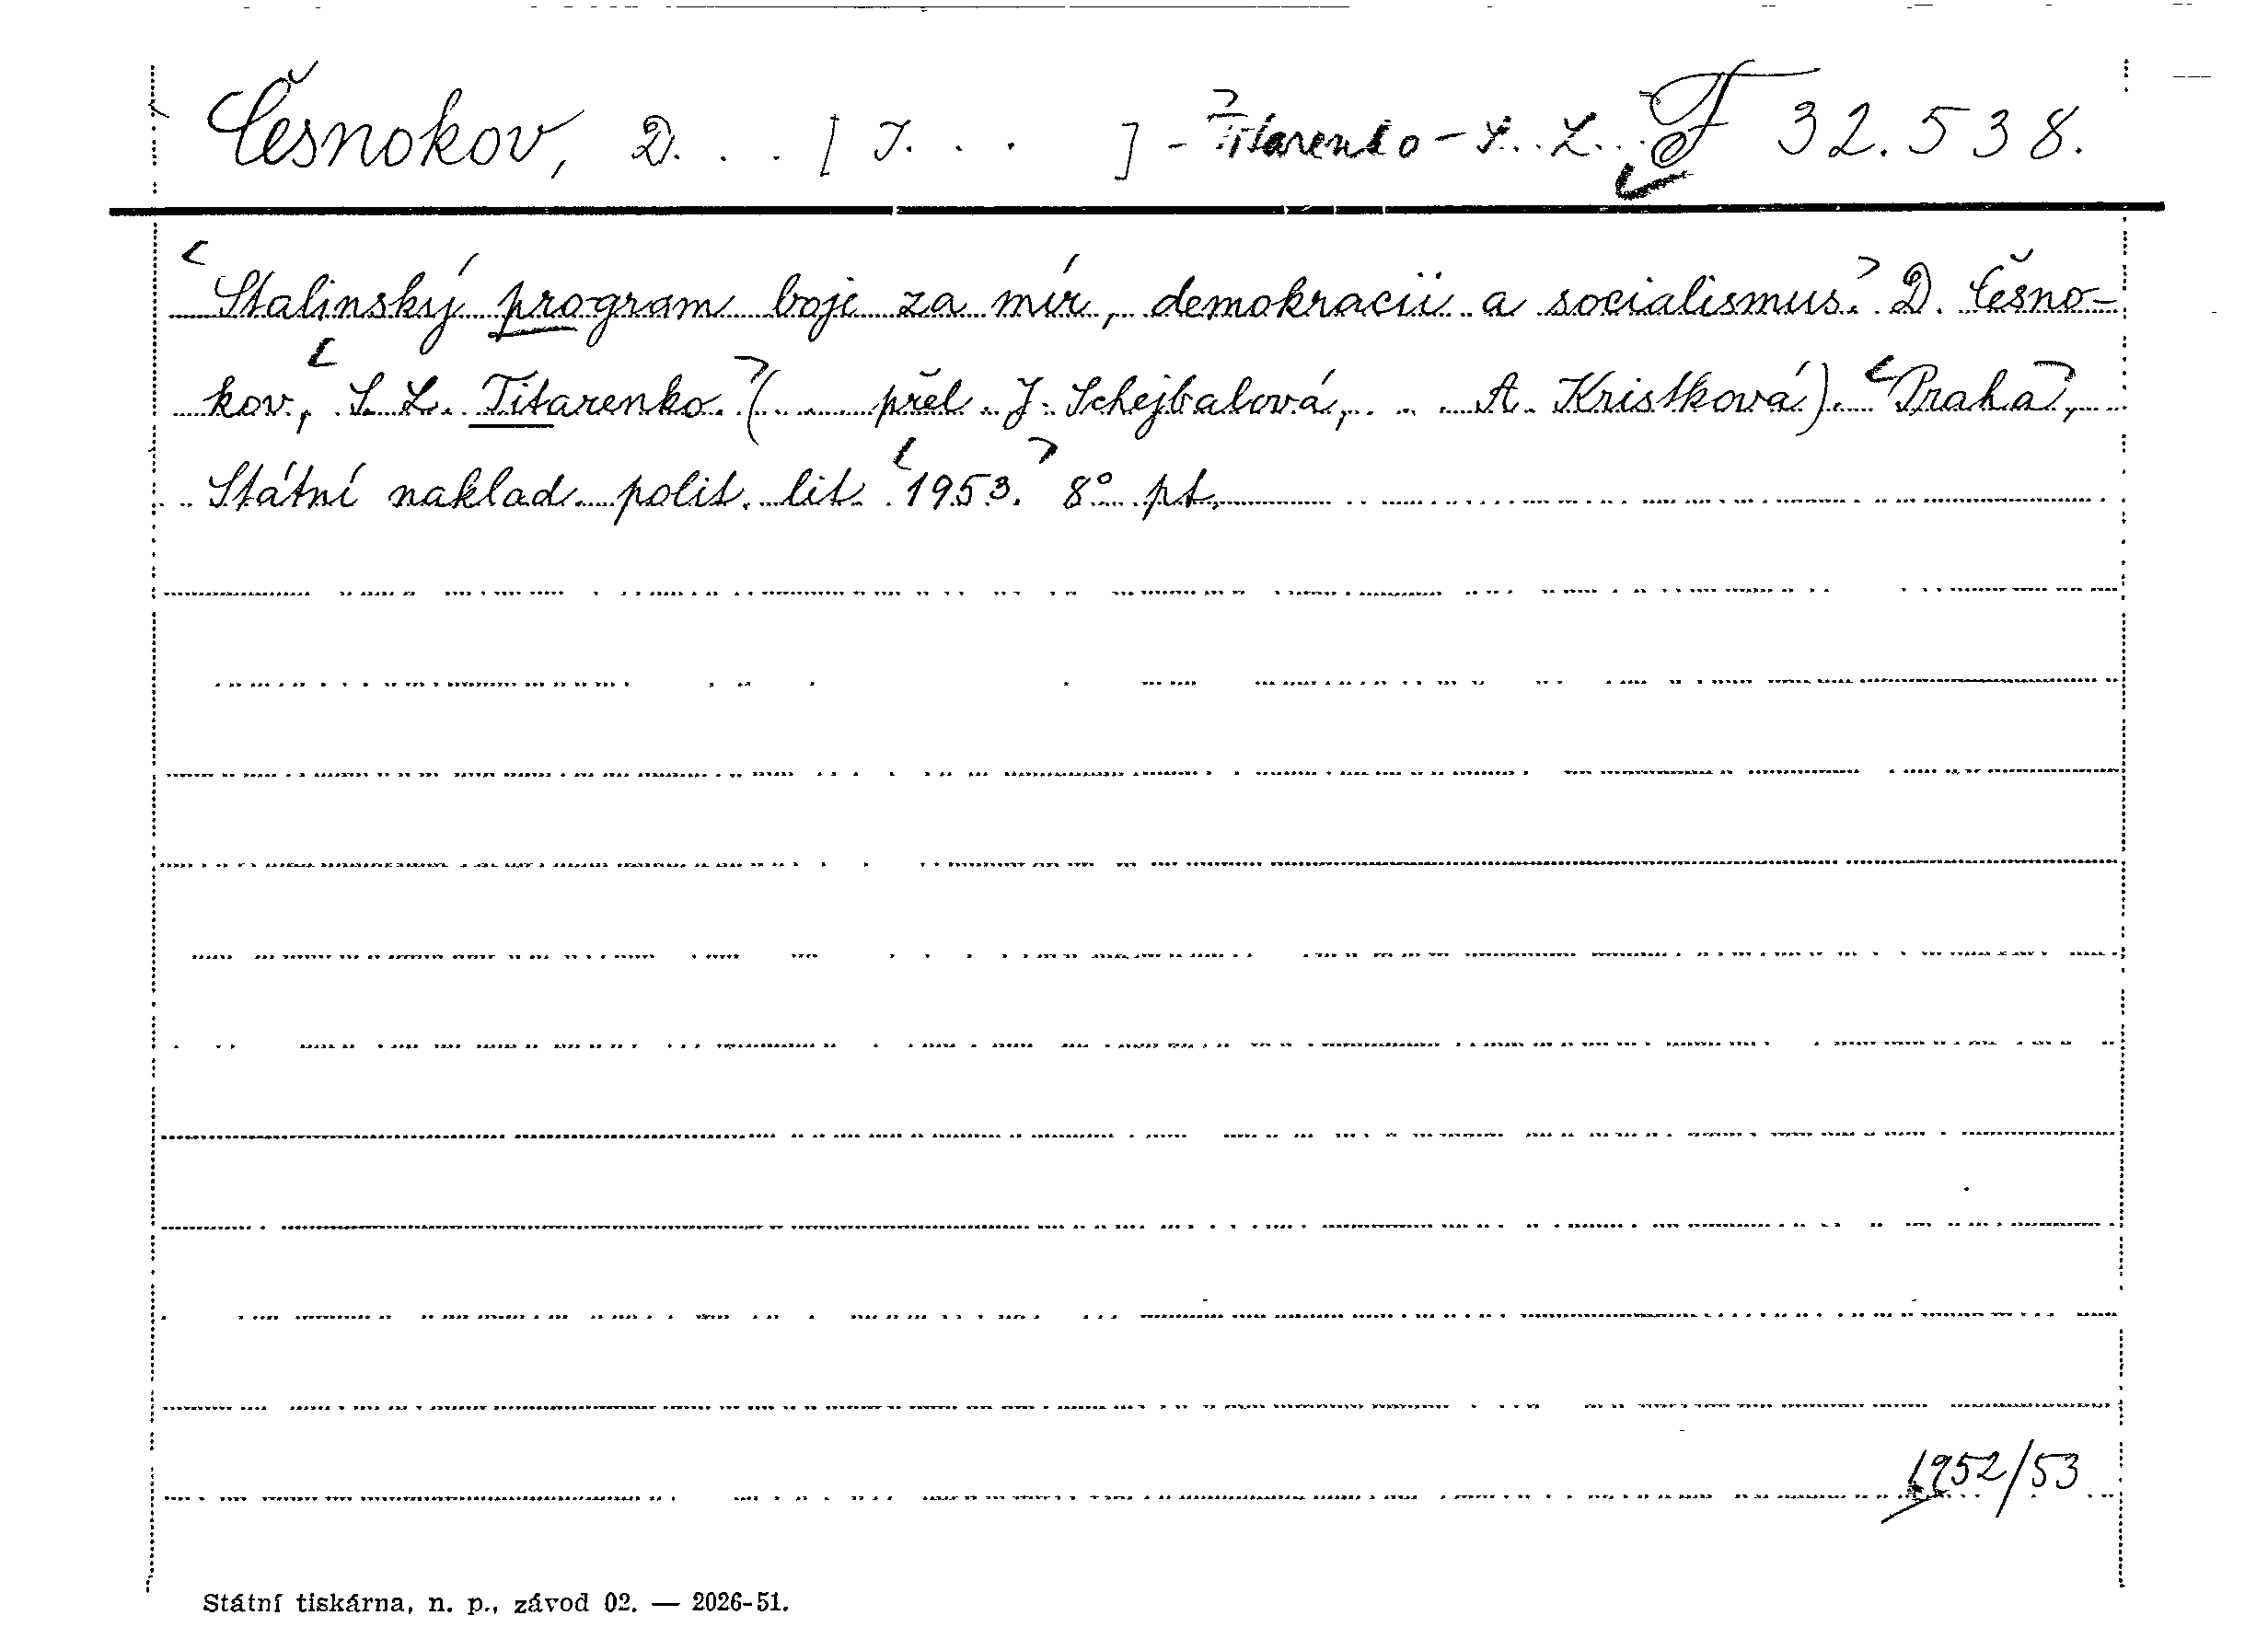 Česnokov, D. . . [J. . . ] - Titarenko - S. . L. . . F 32.538.
Stalinský program boje za mír, demokracii a socialismus. D. Česno-
kov, S. L. Titarenko. (. . . přel. J. Schejbalová, . . . A. Kristková). Praha,
Státní naklad. polit. lit. 1953. 8° pt.
1952/53
Státní tiskárna, n. p., závod 02. — 2026-51.